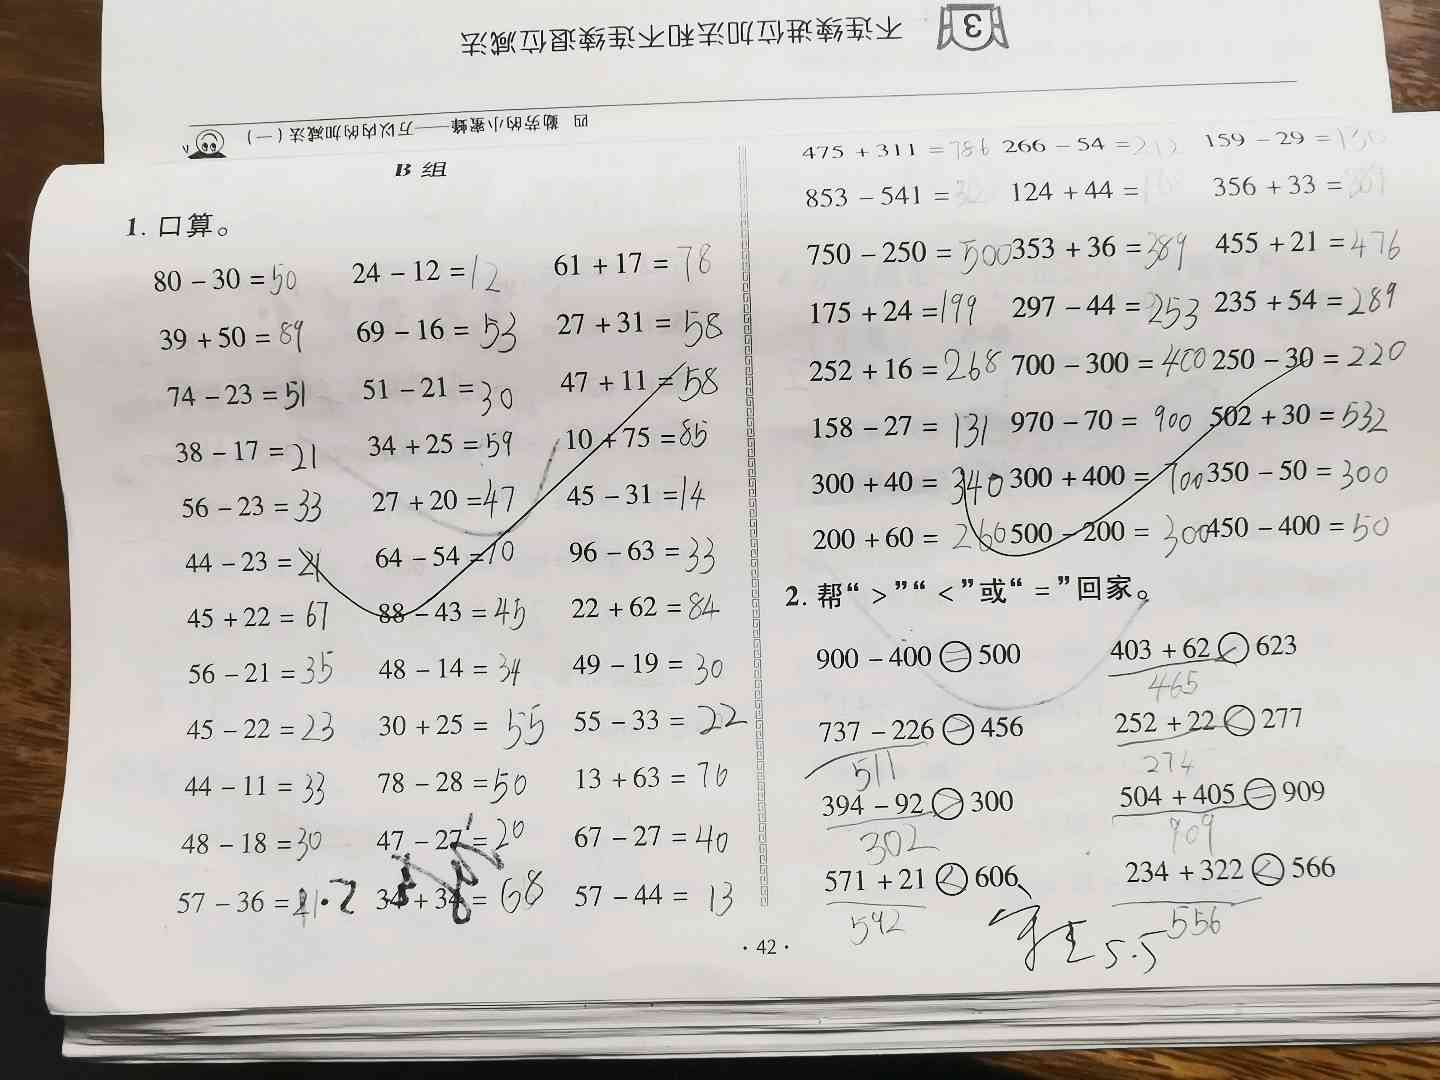 不连续进位加法和不连续退位减法
3
四 勤劳的小蜜蜂——万以内的加减法(一)
B 组
1. 口算。
80 − 30 = 50 24 − 12 = 12 61 + 17 = 78
39 + 50 = 89 69 − 16 = 53 27 + 31 = 58
74 − 23 = 51 51 − 21 = 30 47 + 11 = 58
38 − 17 = 21 34 + 25 = 59 10 + 75 = 85
56 − 23 = 33 27 + 20 = 47 45 − 31 = 14
44 − 23 = 21 64 − 54 = 10 96 − 63 = 33
45 + 22 = 67 88 − 43 = 45 22 + 62 = 84
56 − 21 = 35 48 − 14 = 34 49 − 19 = 30
45 − 22 = 23 30 + 25 = 55 55 − 33 = 22
44 − 11 = 33 78 − 28 = 50 13 + 63 = 76
48 − 18 = 30 47 − 27 = 20 67 − 27 = 40
57 − 36 = 34 + 34 = 68 57 − 44 = 13
475 + 311 = 786 266 − 54 = 212 159 − 29 = 130
853 − 541 = 124 + 44 = 356 + 33 = 389
750 − 250 = 500 353 + 36 = 389 455 + 21 = 476
175 + 24 = 199 297 − 44 = 253 235 + 54 = 289
252 + 16 = 268 700 − 300 = 400 250 − 30 = 220
158 − 27 = 131 970 − 70 = 900 502 + 30 = 532
300 + 40 = 340 300 + 400 = 700 350 − 50 = 300
200 + 60 = 260 500 − 200 = 300 450 − 400 = 50
2. 帮“ > ”“ < ”或“ = ”回家。
900 − 400 = 500 403 + 62 < 623
465
737 − 226 > 456 252 + 22 < 277
511 274
394 − 92 > 300 504 + 405 = 909
302 909
571 + 21 < 606 234 + 322 < 566
592 556
5.5
· 42 ·